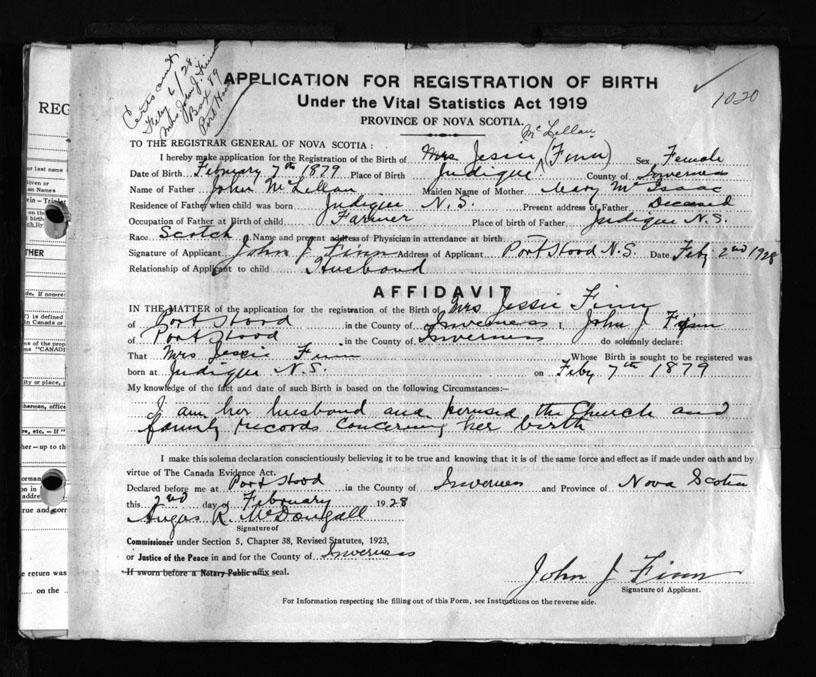 Cert sent
Feby 6/28
Mrs John J. Finn
Box 89
Port Hood
1020
APPLICATION FOR REGISTRATION OF BIRTH
Under the Vital Statistics Act 1919
PROVINCE OF NOVA SCOTIA.
TO THE REGISTRAR GENERAL OF NOVA SCOTIA:
McLellan
I hereby make application for the Registration of the Birth of Mrs Jessie (Finn) Sex Female
Date of Birth February 7th 1879 Place of Birth Judique County of Inverness
Name of Father John McLellan Maiden Name of Mother Mary McIsaac
Residence of Father when child was born Judique N.S. Present address of Father Deceased
Occupation of Father at Birth of child Farmer Place of birth of Father Judique N.S.
Race Scotch Name and present address of Physician in attendance at birth
Signature of Applicant John J Finn Address of Applicant Port Hood N.S. Date Feby 2nd 1928
Relationship of Applicant to child Husband
AFFIDAVIT
IN THE MATTER of the application for the registration of the Birth of Mrs Jessie Finn
of Port Hood in the County of Inverness I, John J Finn
of Port Hood in the County of Inverness do solemnly declare:
That Mrs Jessie Finn Whose Birth is sought to be registered was
born at Judique N.S. on Feby 7th 1879
My knowledge of the fact and date of such Birth is based on the following Circumstances:—
I am her husband and perused the Church and
family records concerning her birth
I make this solemn declaration conscientiously believing it to be true and knowing that it is of the same force and effect as if made under oath and by
virtue of The Canada Evidence Act.
Declared before me at Port Hood in the County of Inverness and Province of Nova Scotia
this 2nd day of February 1928
Angus R. McDougall
Signature of
Commissioner under Section 5, Chapter 38, Revised Statutes, 1923,
or Justice of the Peace in and for the County of Inverness
If sworn before a Notary Public affix seal.
John J Finn
Signature of Applicant.
For Information respecting the filling out of this Form, see Instructions on the reverse side.
REG
or last name
iven or
an Names
THER
ot is defined
in Canada or
"CANADI
ity or place,
herman, office
e, etc. — If "
her—up to th
true and corr
e return was
on the